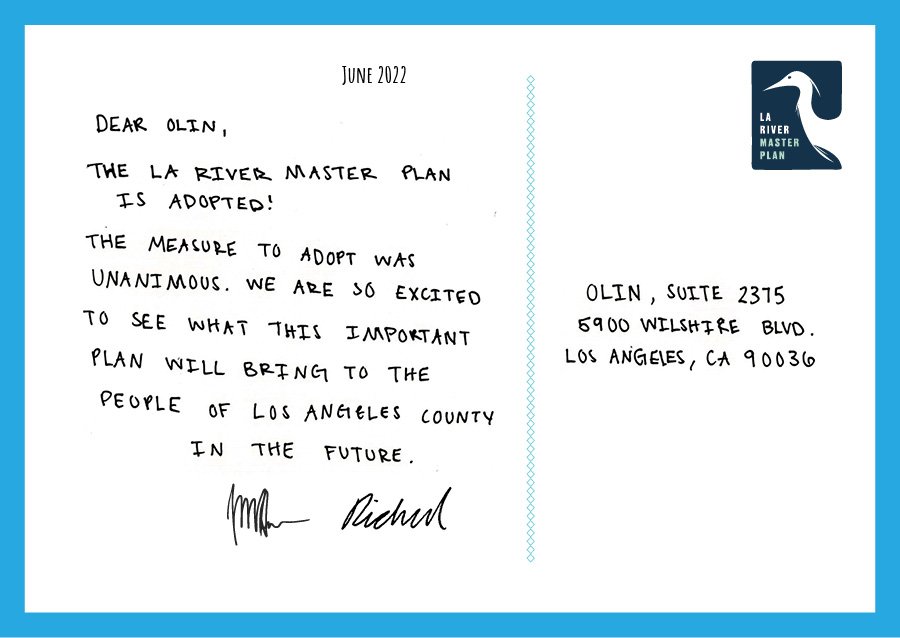 June 2022
DEAR OLIN,
THE LA RIVER MASTER PLAN
IS ADOPTED!
THE MEASURE TO ADOPT WAS
UNANIMOUS. WE ARE SO EXCITED
TO SEE WHAT THIS IMPORTANT
PLAN WILL BRING TO THE
PEOPLE OF LOS ANGELES COUNTY
IN THE FUTURE.
Richard
LA
RIVER
MASTER
PLAN
OLIN, SUITE 2375
5900 WILSHIRE BLVD.
LOS ANGELES, CA 90036